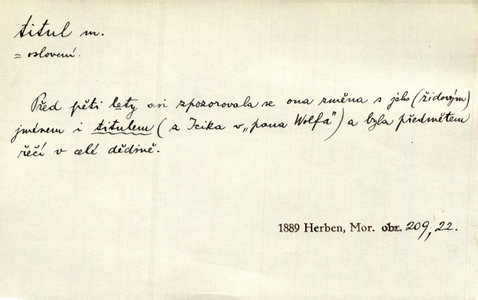 titul m.
= oslovení.
Před pěti lety asi zpozorovala se ona změna s jeho (židovým)
jménem i titulem (z Icika v „pana Wolfa") a byla předmětem
řečí v celé dědině.
1889 Herben, Mor. obr. 209, 22.